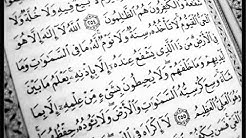 يَوْمٌ لَّا بَيْعٌ فِيهِ وَلَا خُلَّةٌ وَلَا
شَفَٰعَةٌ وَٱلْكَٰفِرُونَ هُمُ ٱلظَّٰلِمُونَ ٢٥٤ ٱللَّهُ لَآ إِلَٰهَ إِلَّا هُوَ
ٱلْقَيُّومُ لَا تَأْخُذُهُۥ سِنَةٌ وَلَا نَوْمٌ لَّهُۥ مَا فِى ٱلسَّمَٰوَٰتِ وَمَا
فِى ٱلْأَرْضِ مَن ذَا ٱلَّذِى يَشْفَعُ عِندَهُۥٓ إِلَّا بِإِذْنِهِۦ يَعْلَمُ مَا بَيْنَ
أَيْدِيهِمْ وَمَا خَلْفَهُمْ وَلَا يُحِيطُونَ بِشَىْءٍ مِّنْ عِلْمِهِۦٓ إِلَّا بِمَا
شَآءَ وَسِعَ كُرْسِيُّهُ ٱلسَّمَٰوَٰتِ وَٱلْأَرْضَ وَلَا يَـُٔودُهُۥ حِفْظُهُمَا
وَهُوَ ٱلْعَلِىُّ ٱلْعَظِيمُ ٢٥٥ لَآ إِكْرَاهَ فِى